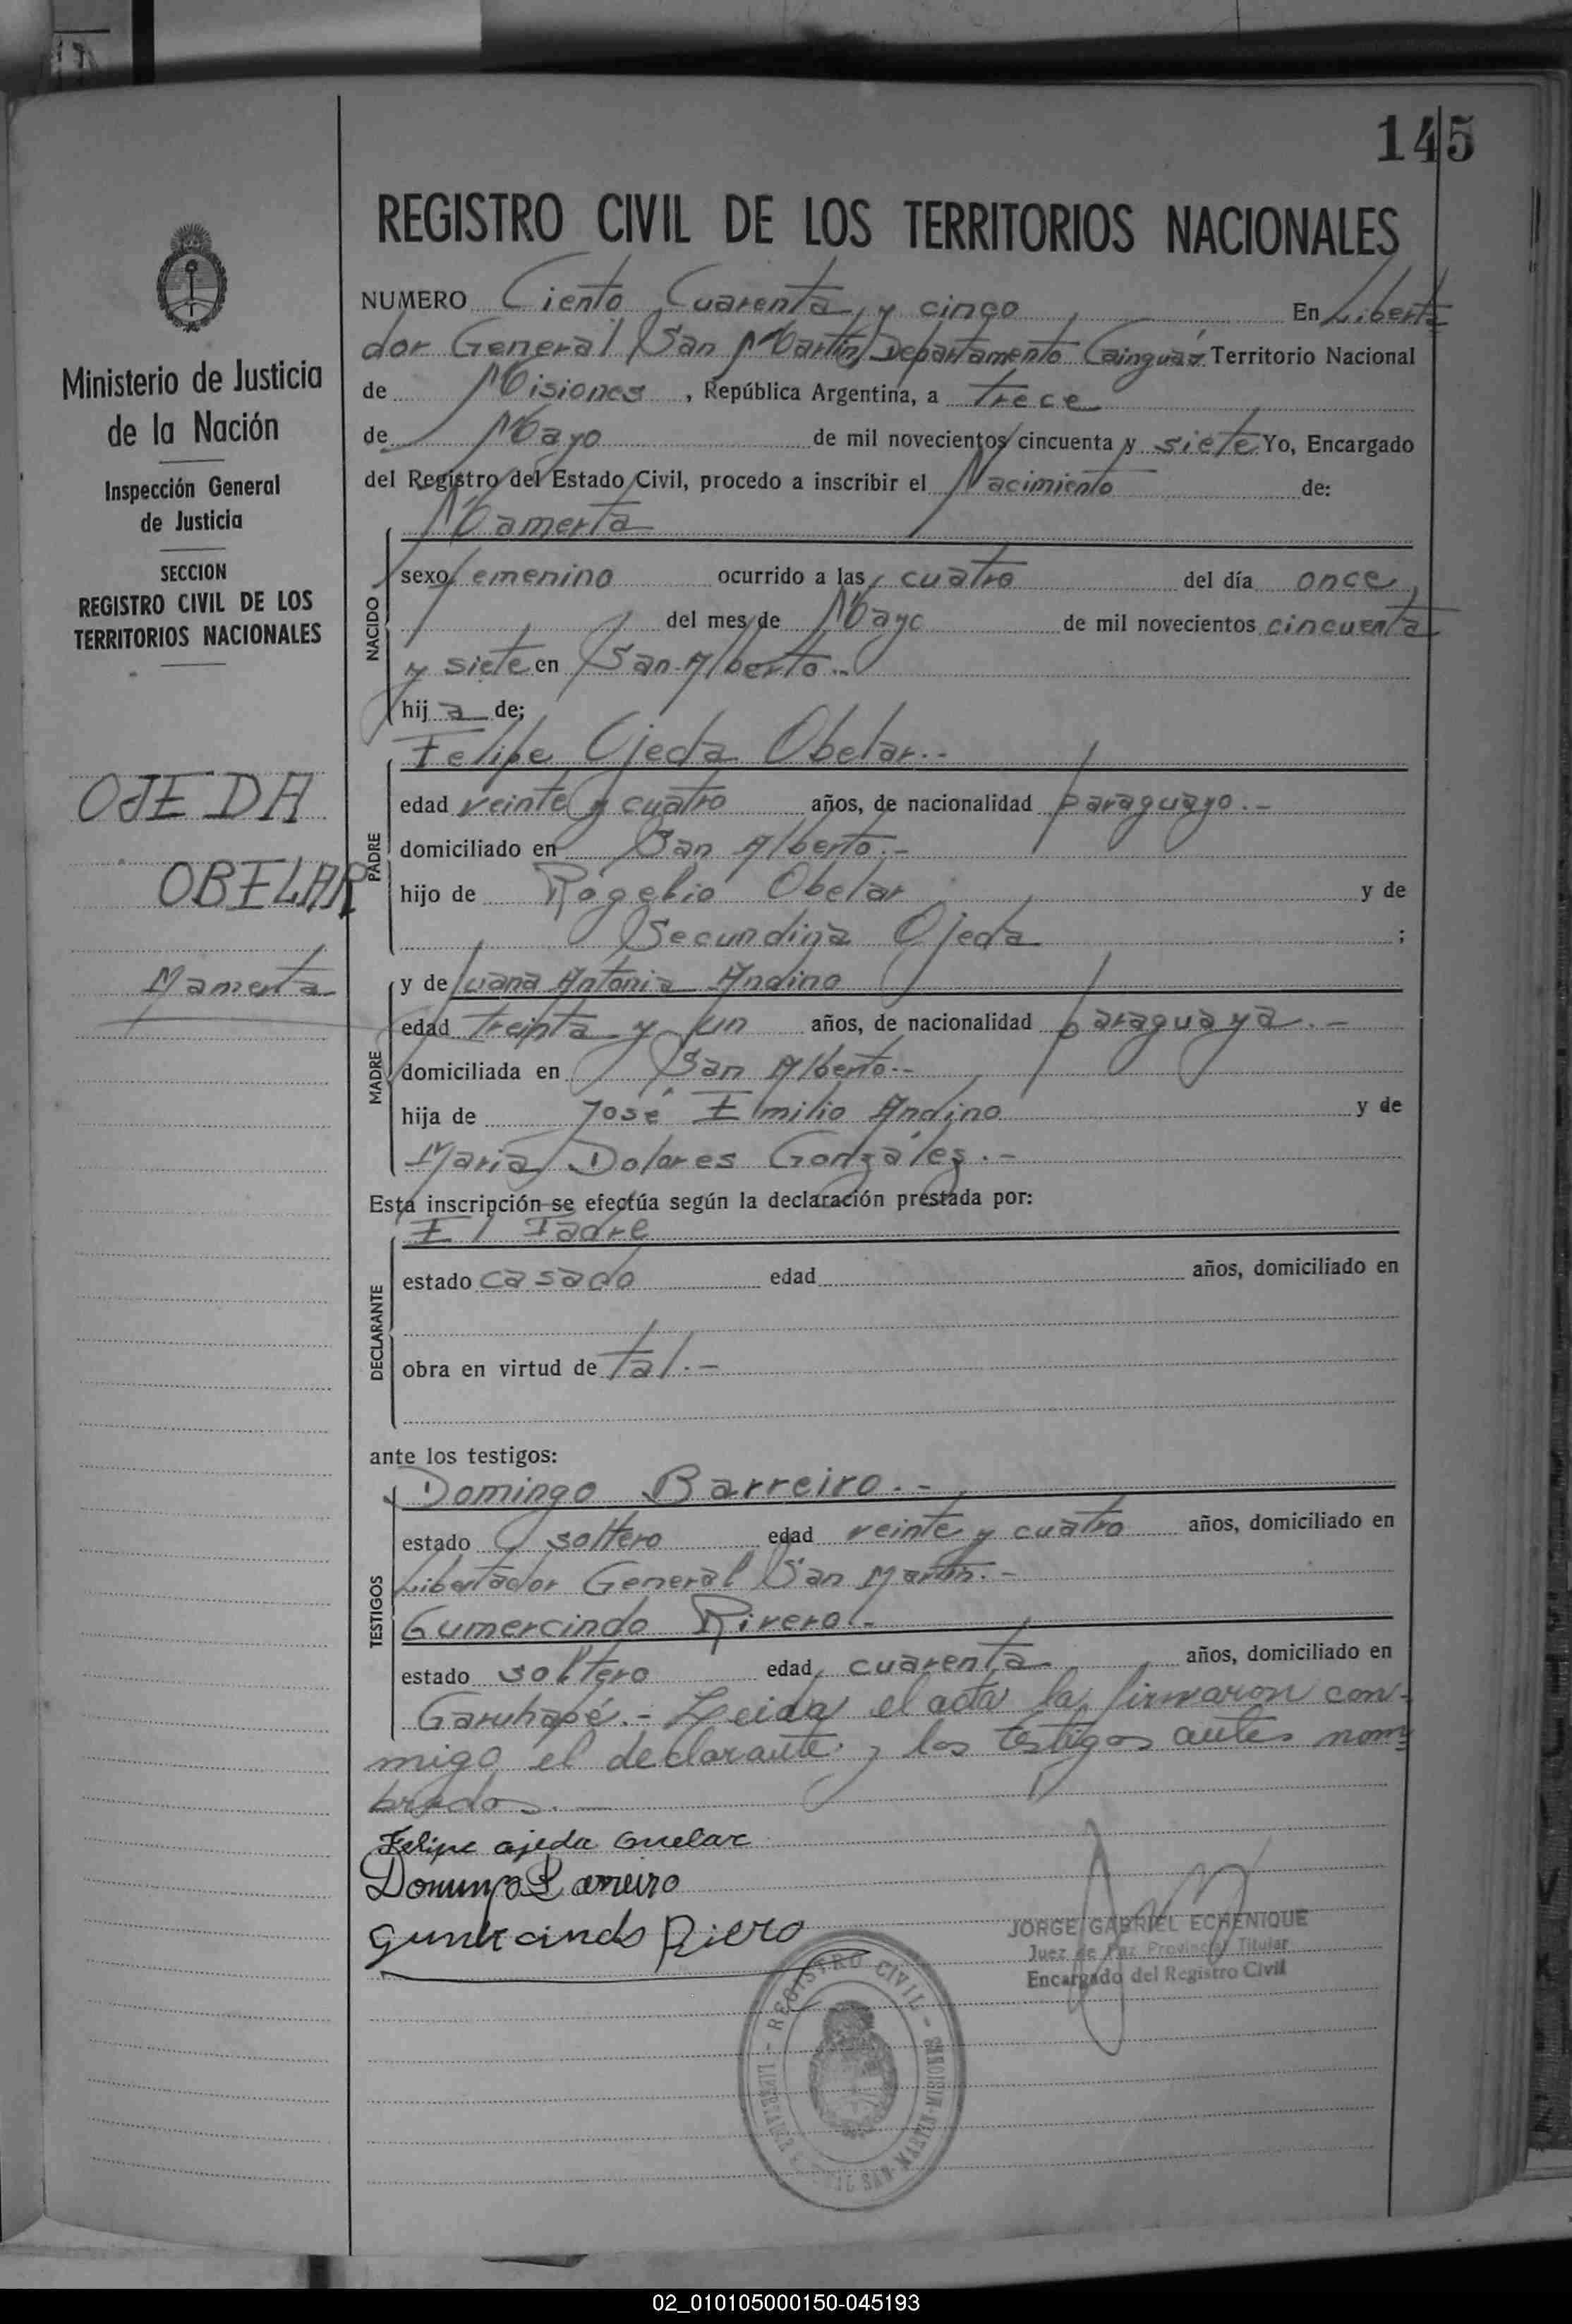 145
REGISTRO CIVIL DE LOS TERRITORIOS NACIONALES
Ministerio de Justicia
de la Nación
Inspección General
de Justicia
SECCION
REGISTRO CIVIL DE LOS
TERRITORIOS NACIONALES
OJEDA
OBELAR
Mamerta
NUMERO Ciento Cuarenta y cinco En Liberta
dor General San Martín, Departamento Cainguáz Territorio Nacional
de Misiones, República Argentina, a trece
de Mayo de mil novecientos cincuenta y siete Yo, Encargado
del Registro del Estado Civil, procedo a inscribir el Nacimiento de:
Mamerta
NACIDO
sexo femenino ocurrido a las cuatro del día once
del mes de Mayo de mil novecientos cincuenta
y siete en San Alberto.-
hij a de;
Felipe Ojeda Obelar.-
PADRE
edad veinte y cuatro años, de nacionalidad paraguayo.-
domiciliado en San Alberto.-
hijo de Rogelio Obelar y de
Secundina Ojeda ;
y de Juana Antonia Andino
MADRE
edad treinta y un años, de nacionalidad paraguaya.-
domiciliada en San Alberto.-
hija de José Emilio Andino y de
María Dolores Gonzáles.-
Esta inscripción se efectúa según la declaración prestada por:
El Padre
DECLARANTE
estado casado edad años, domiciliado en
obra en virtud de tal.-
ante los testigos:
Domingo Barreiro.-
TESTIGOS
estado soltero edad veinte y cuatro años, domiciliado en
Libertador General San Martín.-
Gumercindo Rivero.-
estado soltero edad cuarenta años, domiciliado en
Garuhapé.- Leida el acta la firmaron con-
migo el declarante y los testigos antes nom=
brados.-
Felipe ojeda
Domingo Barreiro
JORGE GABRIEL ECHENIQUE
Juez de Paz Provincial Titular
Encargado del Registro Civil
REGISTRO CIVIL
02_010105000150-045193